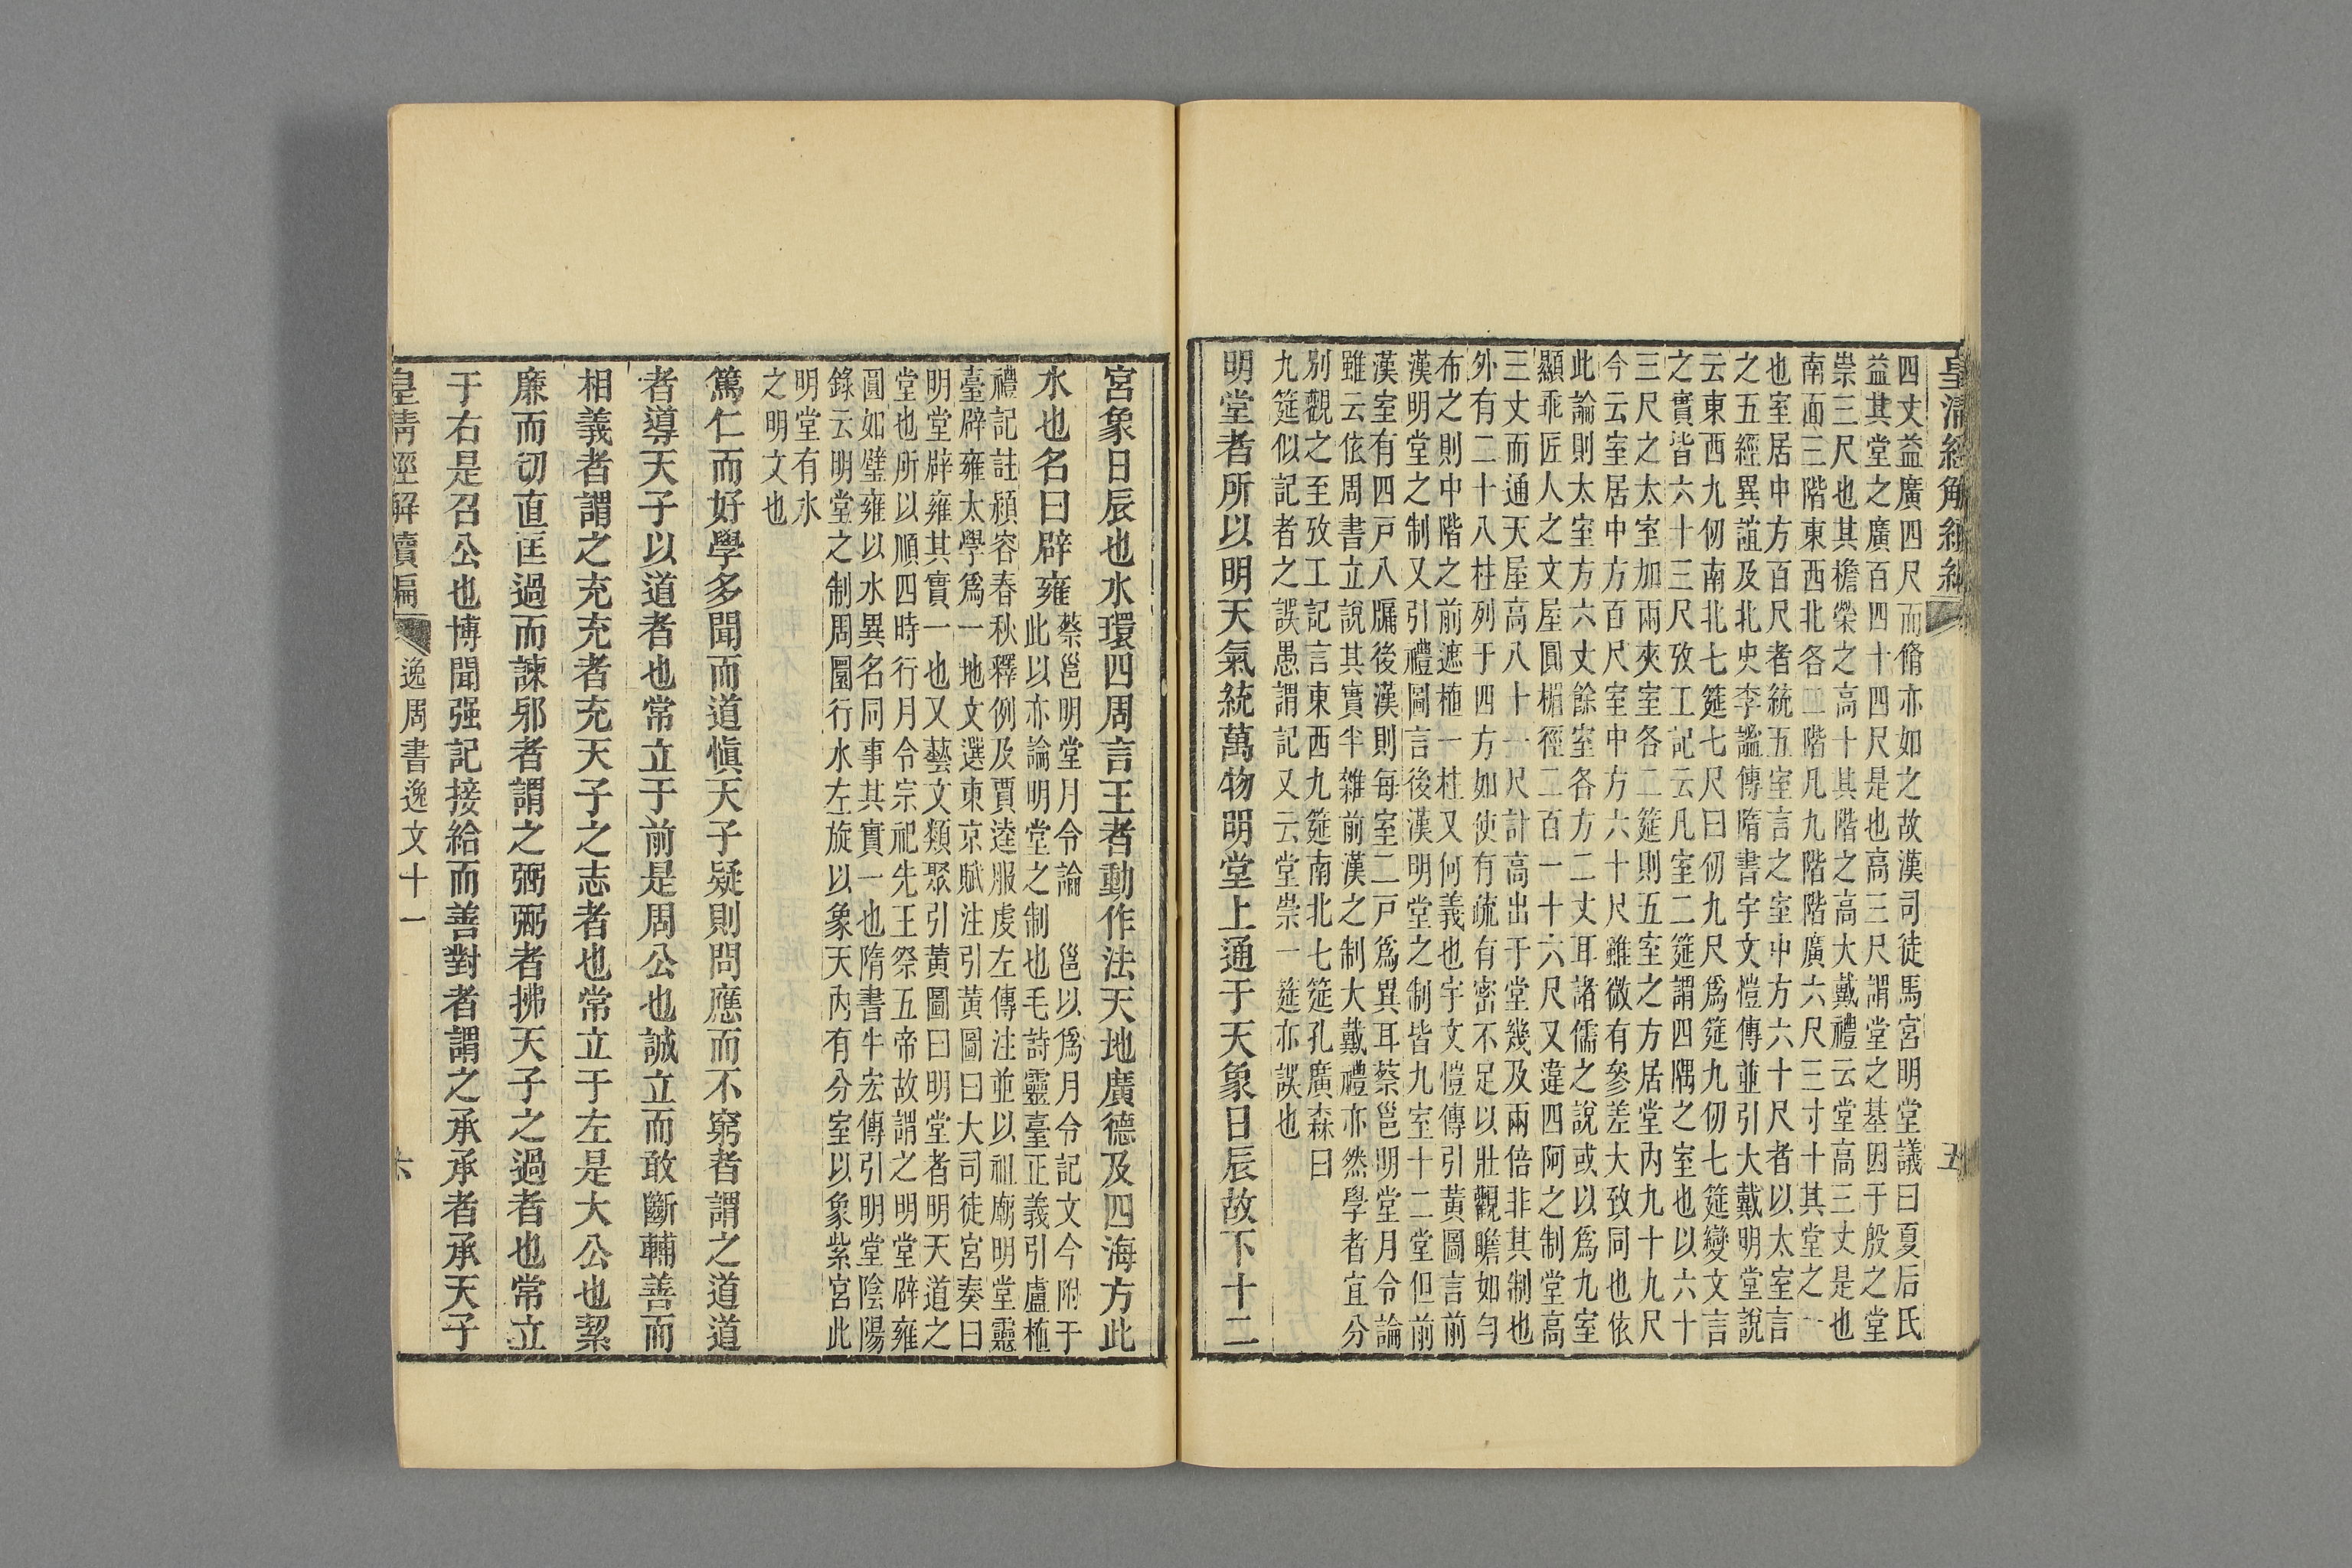 皇清經解續編
五
四丈益廣四尺而脩亦如之故漢司徒馬宮明堂議曰夏后氏
益其堂之廣百四十四尺是也高三尺謂堂之基因于殷之堂
崇三尺也其檐榮之高十其階之高大戴禮云堂高三丈是也
南面三階東西北各二階凡九階階廣六尺三寸十其堂之一
也室居中方百尺者統五室言之室中方六十尺者以太室言
之五經異誼及北史李謐傳隋書宇文愷傳並引大戴明堂說
云東西九仞南北七筵七尺曰仞九尺爲筵九仞七筵變文言
之實皆六十三尺攷工記云凡室二筵謂四隅之室也以六十
三尺之太室加兩夾室各二筵則五室之方居堂內九十九尺
今云室居中方百尺室中方六十尺雖微有參差大致同也依
此論則太室方六丈餘室各方二丈耳諸儒之說或以爲九室
顯乖匠人之文屋圓楣徑二百一十六尺又違四阿之制堂高
三丈而通天屋高八十一尺計高出于堂幾及兩倍非其制也
外有二十八柱列于四方如使有疏有密不足以壯觀瞻如勻
布之則中階之前遮植一柱又何義也宇文愷傳引黃圖言前
漢明堂之制又引禮圖言後漢明堂之制皆九室十二堂但前
漢室有四戸八牖後漢則每室二戸爲異耳蔡邕明堂月令論
雖云依周書立說其實半雜前漢之制大戴禮亦然學者宜分
別觀之至攷工記言東西九筵南北七筵孔廣森曰
九筵似記者之誤愚謂記又云堂崇一筵亦誤也
明堂者所以明天氣統萬物明堂上通于天象日辰故下十二
宮象日辰也水環四周言王者動作法天地廣德及四海方此
水也名曰辟雍
蔡邕明堂月令論　邕以爲月令記文今附于
此以亦論明堂之制也毛詩靈臺正義引盧植
禮記註潁容春秋釋例及賈逵服虔左傳注並以祖廟明堂靈
臺辟雍太學爲一地文選東京賦注引黃圖曰大司徒宮奏曰
明堂辟雍其實一也又藝文類聚引黃圖曰明堂者明天道之
堂也所以順四時行月令宗祀先王祭五帝故謂之明堂辟雍
圓如璧雍以水異名同事其實一也隋書牛宏傳引明堂陰陽
錄云明堂之制周圜行水左旋以象天內有分室以象紫宮此
明堂有水
之明文也
篤仁而好學多聞而道愼天子疑則問應而不窮者謂之道道
者導天子以道者也常立于前是周公也誠立而敢斷輔善而
相義者謂之充充者充天子之志者也常立于左是大公也絜
廉而切直匡過而諫邪者謂之弼弼者拂天子之過者也常立
于右是召公也博聞强記接給而善對者謂之承承者承天子
皇清經解續編
逸周書逸文十一
六